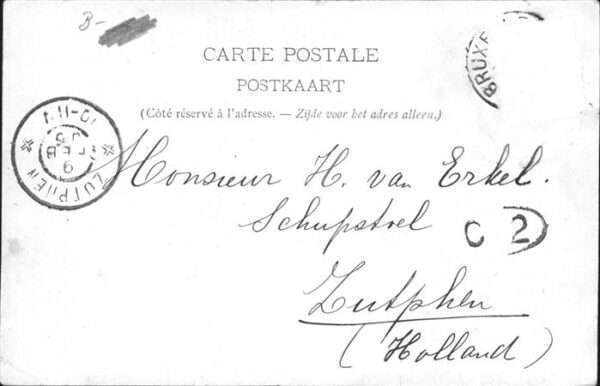 B-
CARTE POSTALE
POSTKAART
(Côté réservé à l'adresse. — Zijde voor het adres alleen.)
BRUXE
ZUTPHEN
9 FEB 05
10-11V
Monsieur H. van Erkel.
Schupstoel
C 2
Zutphen
(Holland)